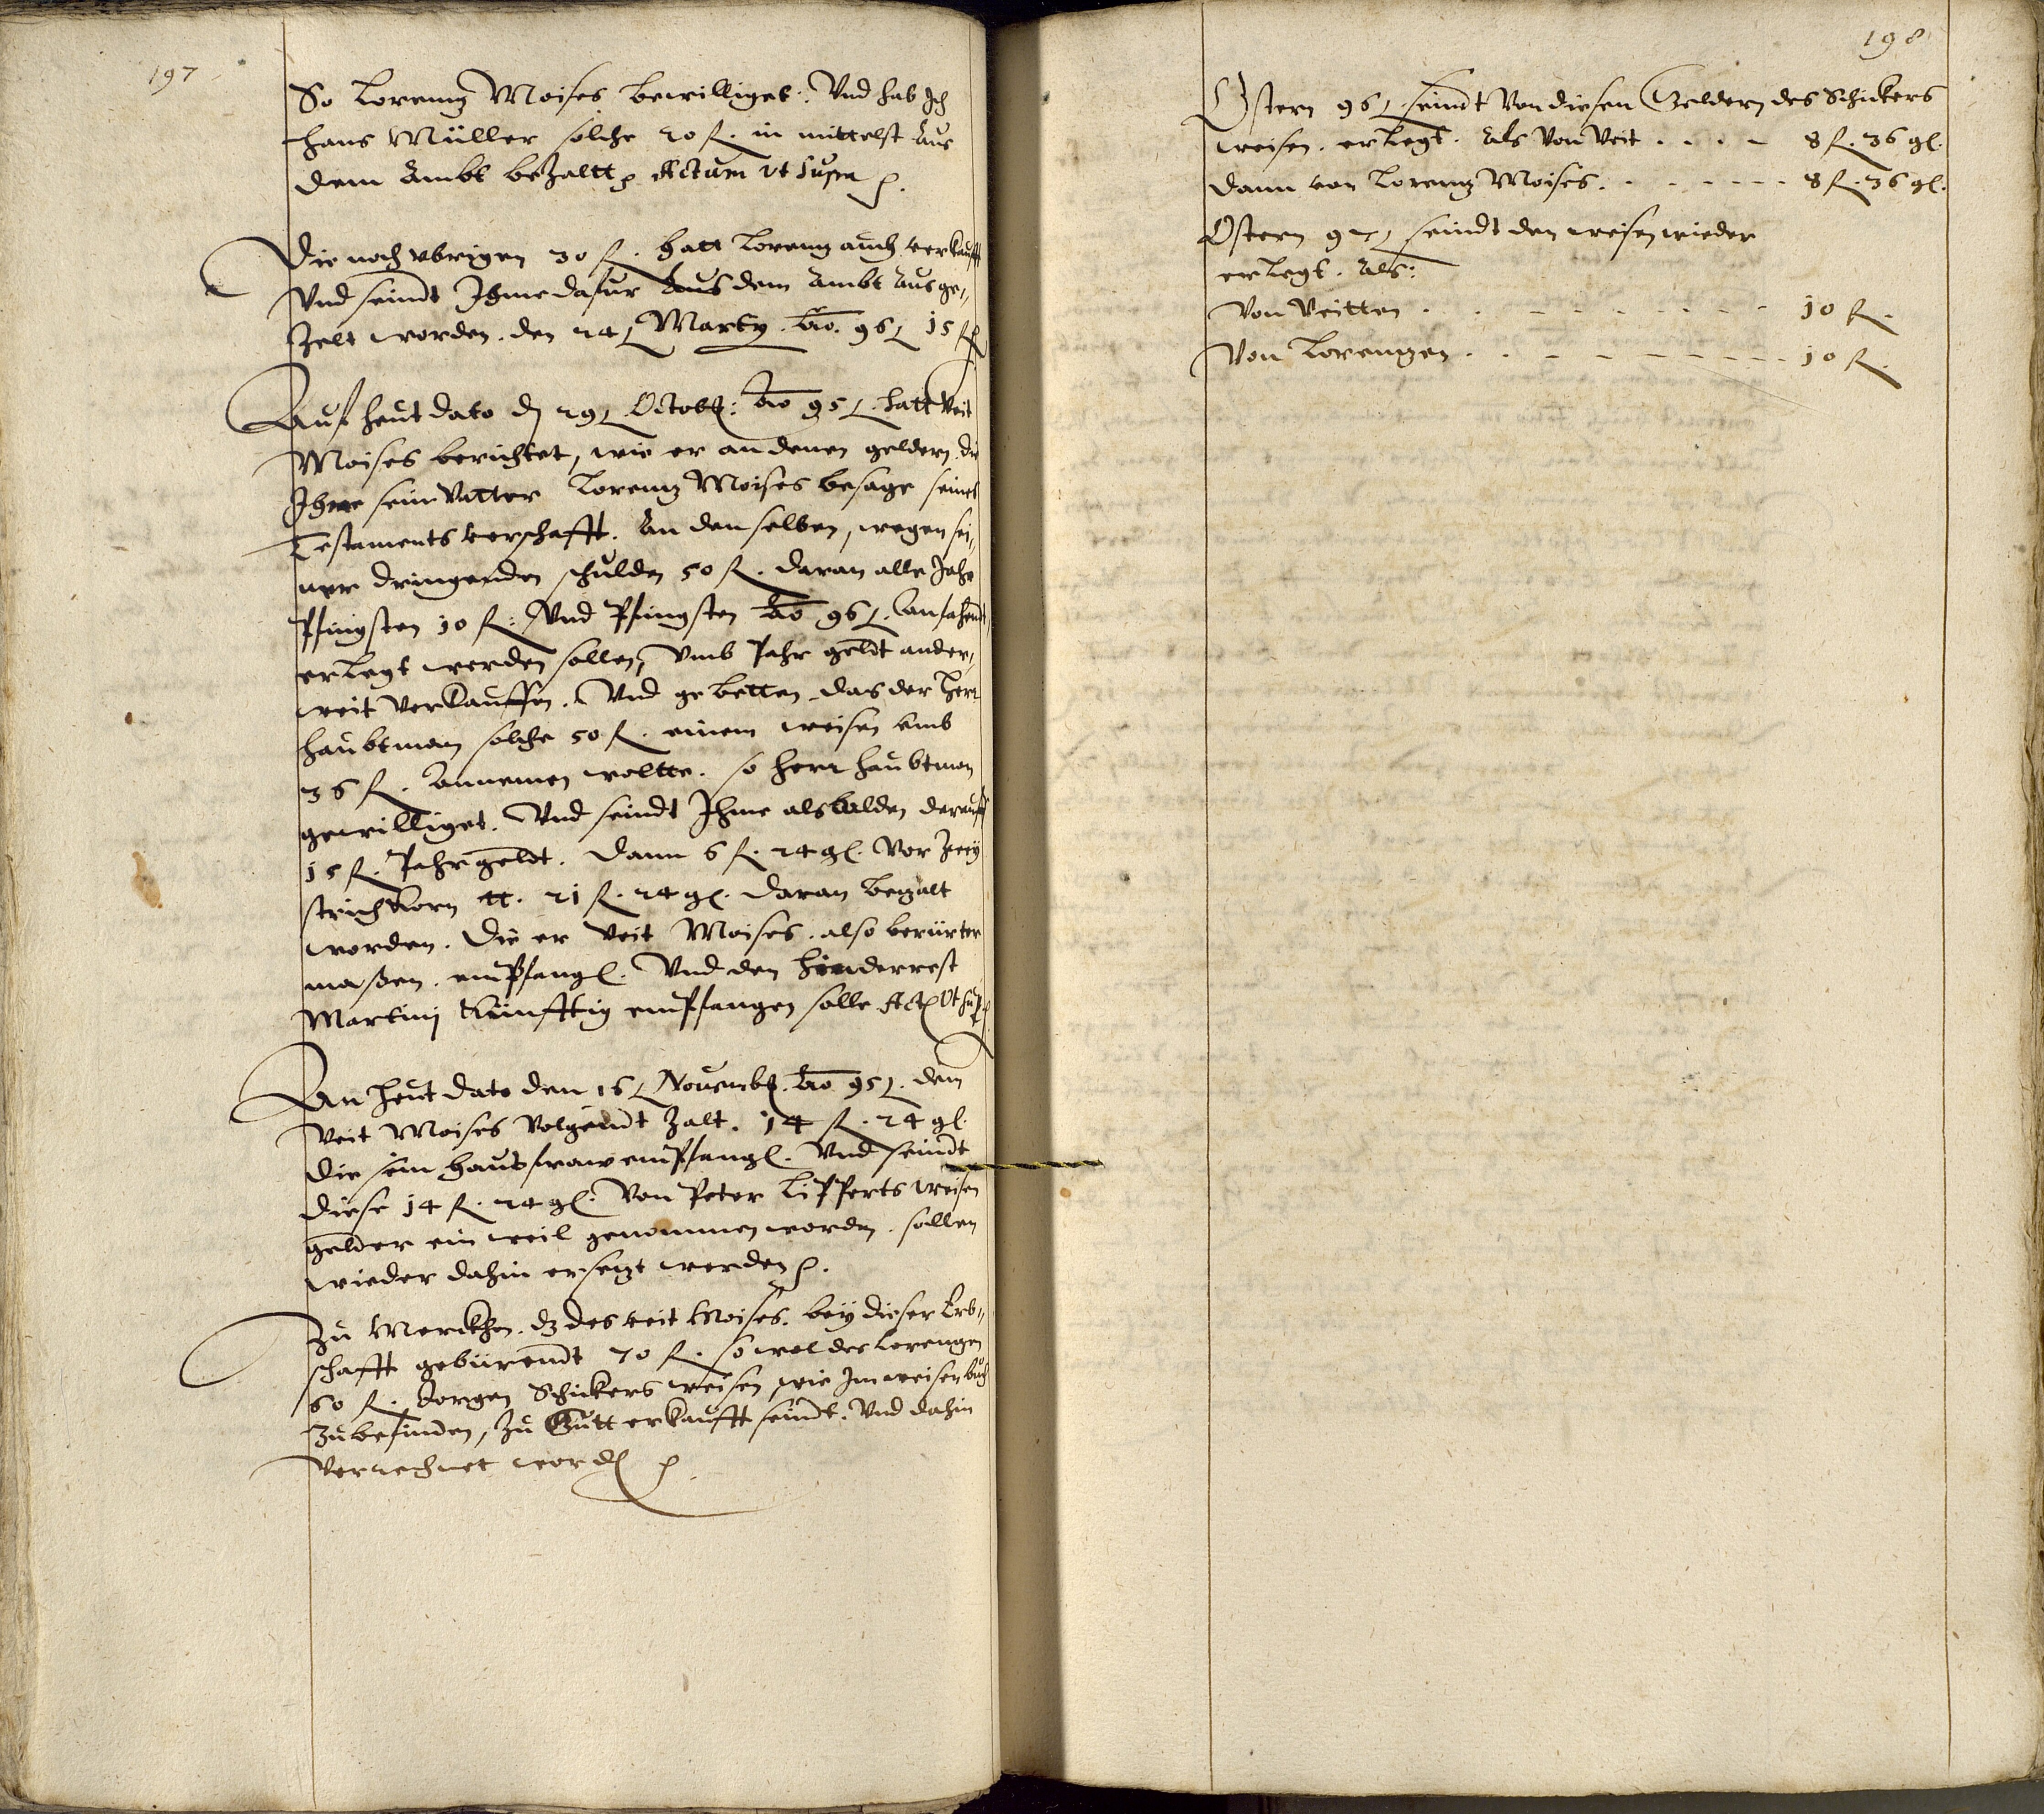 197
So Lorenz Moises bewilliget: Vnd hab Jch
Hans Müller solche 20 fl. in mittelst Aus
dem Ambt bezaltt Actum vt supra
Die noch vbrigen 30 fl. hatt Lorenz auch verkaufft
Vnd seindt Jhme dafur Aus dem Ambt Ausge,,
zelt worden. den 24 Marty. Ao. 96 15 fl
Auf heut dato dn 29 Octob: Ao 95. hatt Veit
Moises berichtet, wie er an denen geldern. die
Jhme sein Vatter Lorenz Moises besage seines
Testaments verschafft. An denselben, wegen sei,,
ner dringenden schulden 50 fl. daran alle Jahr
Pfingsten 10 fl: Vnd Pfingsten Ao 96. anfahendt,
erlegt werden sollen, vmb Jahr geldt ander,,
weit verkauffen. Vnd gebetten das der Herr
Haubtman solche 50 fl. einem weisen vmb
36 fl. Annemen woltte. so Herr Haubtman
gewilliget. Vnd seindt Jhme alsbalden darauff
15 fl. Jahrgeldt. dann 6 fl. 24 gl. Vor Zwey
strich Korn tt. 21 fl. 24 gl. daran bezalt
worden. Die er Veit Moises. also berürter
maßen. empfangl. Vnd den hinderrest
Martinj Künfftig empfangen solle Act Vt sup
An heut dato den 16 Nouemb. Ao 95. dem
Veit Moises Volgendt Zalt. 14 fl. 24 gl.
die sein hausfraw empfangl. Vnd seindt
diese 14 fl. 24 gl. Von Peter Lipperts weisen
gelder ein weil genommen worden. sollen
wieder dahin ersezt werden.
Zu Merckhen. dz des veit Moises. bey dieser Erb,,
schafft gebürendt 70 fl. so wol des Lorenzen
60 fl. Jorgen Schickers weisen wie Jm weisenbuch
Zubefinden, Zu Gutt erkaufft seindt. Vnd dahin
Verrechnet wordn
198
Ostern 96 seindt Von diesen Geldern des Schickers
weisen. erlegt. Als Von Veit . . . . 8 fl. 36 gl.
dann von Lorenz Moises. . . - - - - 8 fl. 36 gl.
Ostern 97 seindt den weisen wieder
erlegt. Als:
Von Veitten . . - - - - - - - 10 fl.
Von Lorenzen . . - - - - - - - 10 fl.